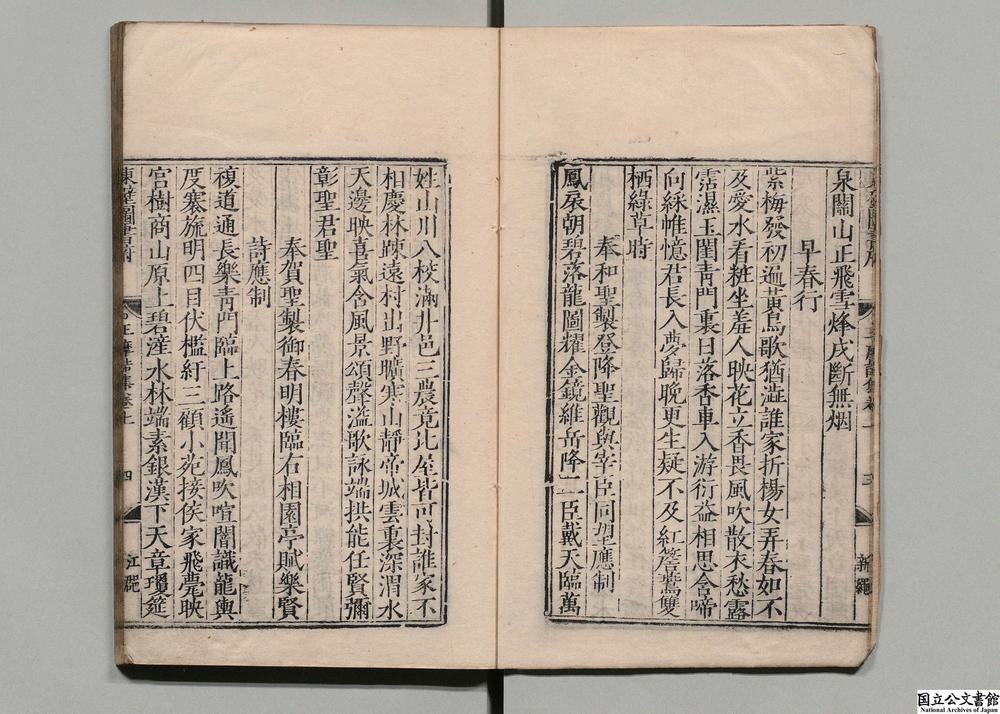 泉闇山正飛雪烽戍斷無烟
早春行
紫梅發初遍黃鳥歌猶澁誰家折楊女弄春如不
及愛水看粧坐羞人映花立香畏風吹散衣愁露
霑濕玉閨青門裏日落香車入游衍益相思含啼
向綵帷憶君長入夢歸晚更生疑不及紅簷鷰雙
栖綠草時
奉和聖製登降聖觀與宰臣同望應制
鳳扆朝碧落龍圖耀金鏡維岳降二臣戴天臨萬
姓山川八校滿井邑三農竟比屋皆可封誰家不
相慶林疎遠村出野曠寒山靜帝城雲裏深渭水
天邊映喜氣含風景頌聲溢歌詠端拱能任賢彌
彰聖君聖
奉賀聖製御春明樓臨右相園亭賦樂賢
詩應制
複道通長樂青門臨上路遙聞鳳吹喧闇識龍輿
度褰旒明四目伏檻紆三顧小苑接侯家飛甍映
宮樹商山原上碧滻水林端素銀漢下天章瓊筵
東壁圖書府
王摩詰集卷上
四
三
国立公文書館
National Archives of Japan